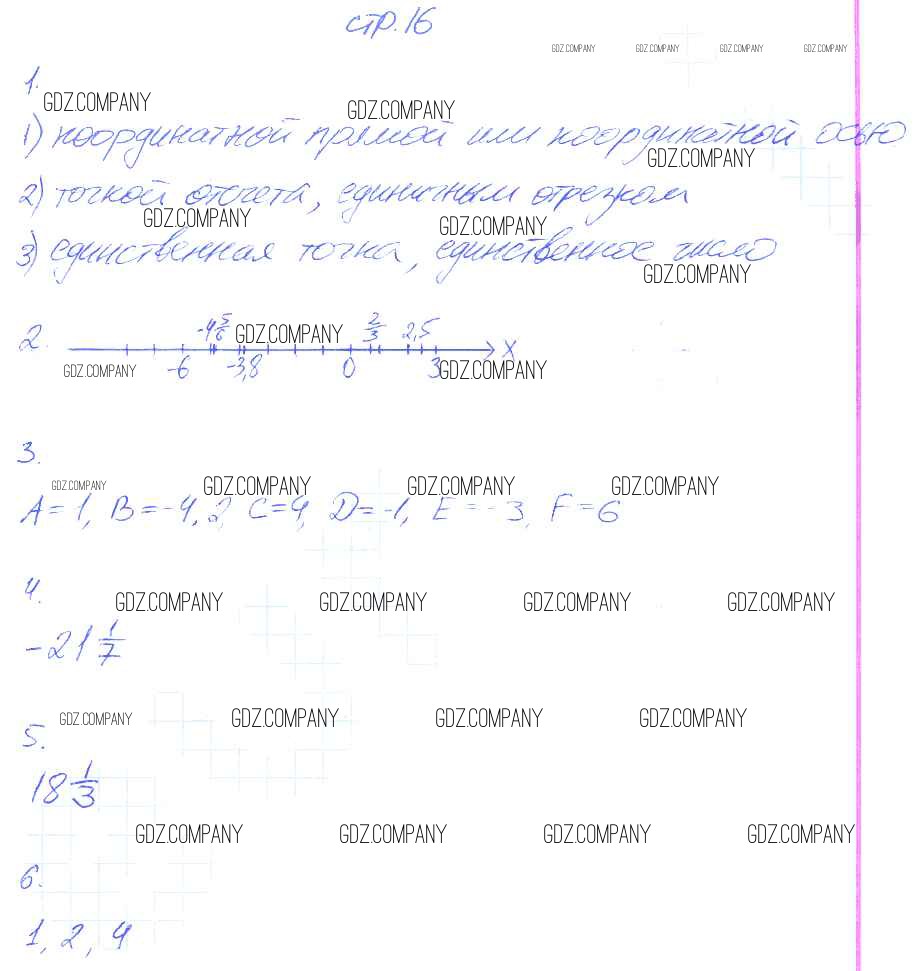 стр. 16
GDZ.COMPANY GDZ.COMPANY GDZ.COMPANY GDZ.COMPANY
1.
GDZ.COMPANY GDZ.COMPANY
1) координатной прямой или координатной осью
GDZ.COMPANY
2) точкой отсчета, единичным отрезком
GDZ.COMPANY GDZ.COMPANY
3) единственная точка, единственное число
GDZ.COMPANY
2. -4 5/6 GDZ.COMPANY 2/3 2,5 x
GDZ.COMPANY -6 -3,8 0 3 GDZ.COMPANY
3.
GDZ.COMPANY GDZ.COMPANY GDZ.COMPANY GDZ.COMPANY
A = 1, B = -4, 2, C = 4, D = -1, E = -3, F = 6
4.
GDZ.COMPANY GDZ.COMPANY GDZ.COMPANY GDZ.COMPANY
-21 1/7
GDZ.COMPANY GDZ.COMPANY GDZ.COMPANY GDZ.COMPANY
5.
18 1/3
GDZ.COMPANY GDZ.COMPANY GDZ.COMPANY GDZ.COMPANY
6.
1, 2, 4